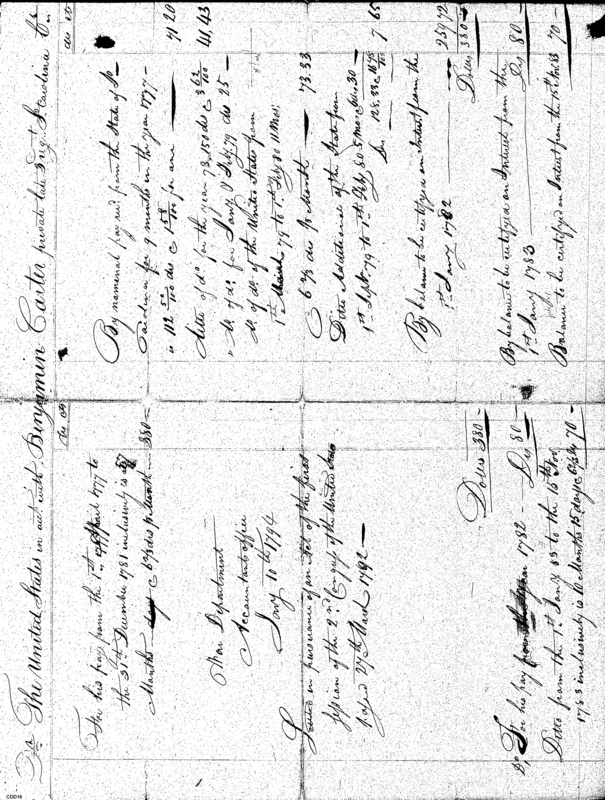 Drs The United States in acct. with Benjamin Carter private late 3 Regt. S. Carolina Crs.
Drs Cts
For his pay from the 1st April 1777 to
the 31st December 1781 inclusively is 57
Months @ 6 2/3 drs pr Month — 380 —
War Department
Accountants office
Jany 10th 1794
Settled in pursuance of an Act of the first
session of the 2nd Congress of the United States
passed 27th March 1792 —
Dolrs 380 —
Do For his pay year 1782 — Drs 80 —
Ditto from the 1st Jany 83 to the 15th Nov
1783 inclusively is 10 Months 15 days @ 70 —
drs cts
By nominal pay recd. from the State of So
Carolina for 9 months in the year 1777 —
is 112 50/100 drs @ 1 58/100 for one — 71 20
Ditto of do for the year 78, 150 drs @ 3 62/100 41,43
" do of do for Jany & Feby 79 drs 25 —
do of do of the United States from
1st March 79 to 1st Feby 80 11 Mos:
@ 6 2/3 drs pr Month — 73.33
Ditto Additional of the State from
1st Sept. 79 to 1st Feby 80 5 mo: @ 30 —
7 65
By balance to be certified on Interest from the
1st Jany 1782 —
Dolrs 380 —
By balance to be certified on Interest from the
1st Jany 1783 — Drs 80 —
Balance to be certified on Interest from the 15th 83 70 —
CDD16